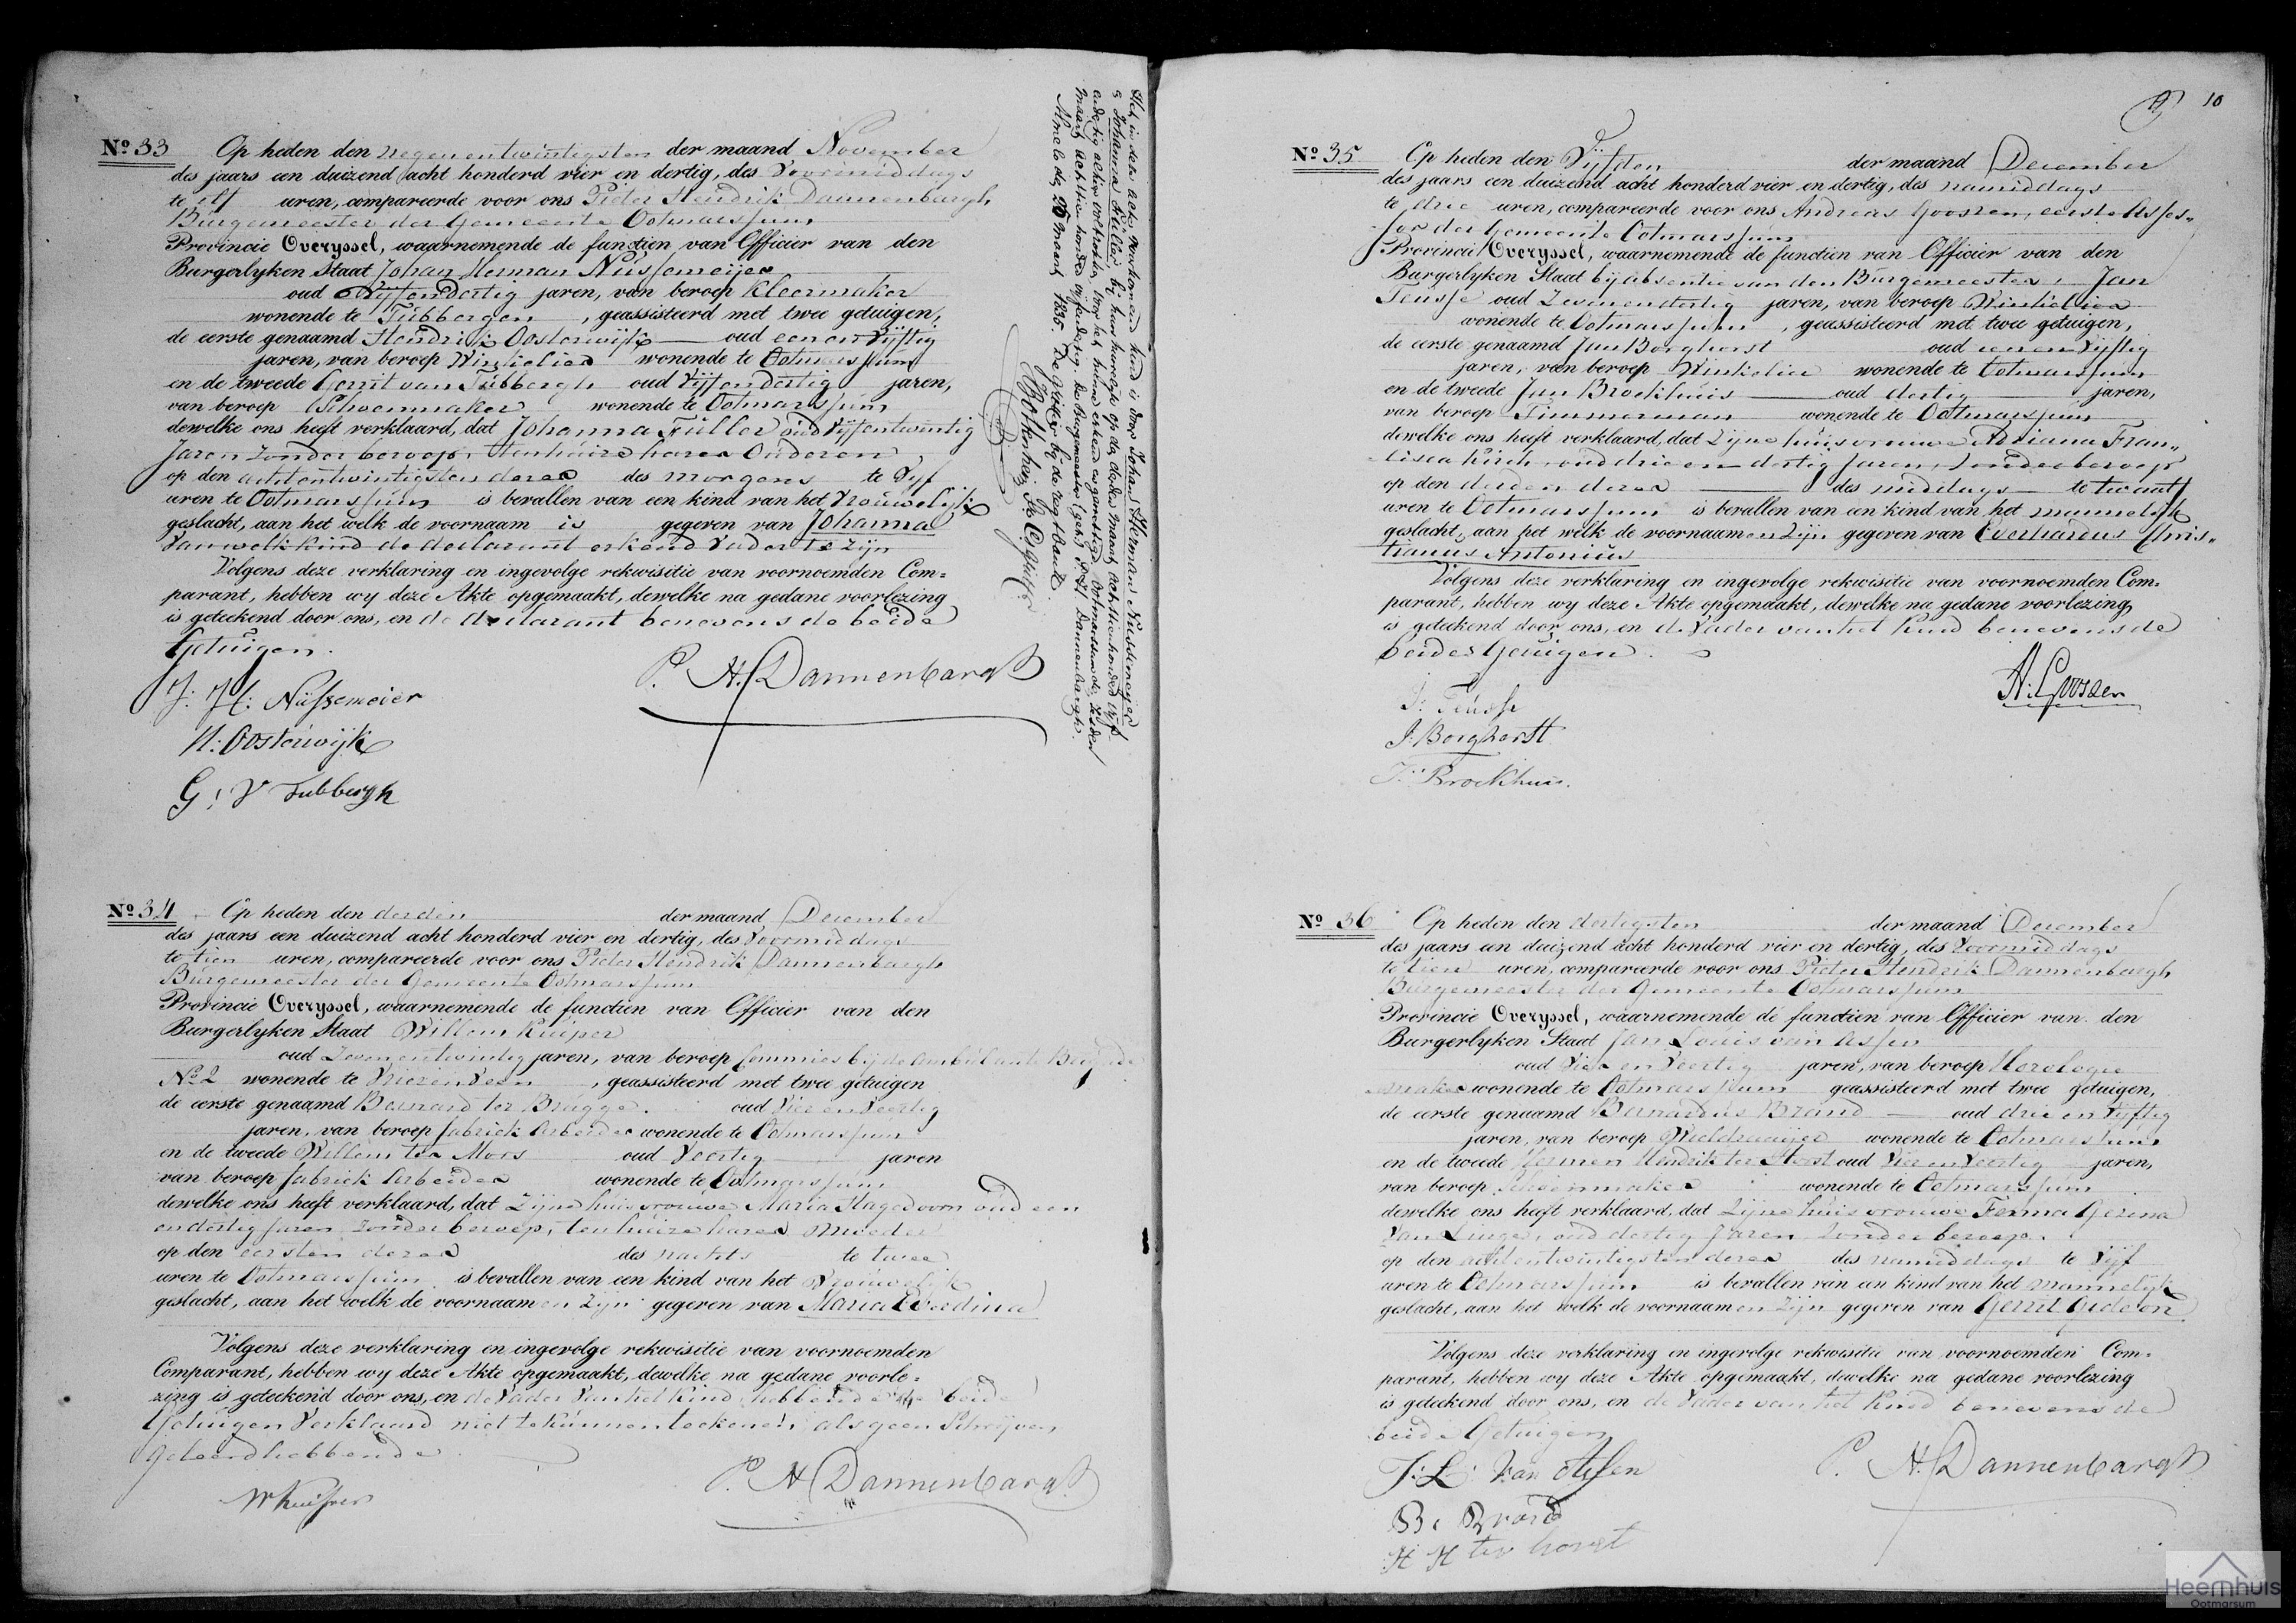 Nº 33 Op heden den negenentwintigsten der maand November
des jaars een duizend acht honderd vier en dertig, des Voormiddags
te elf uren, compareerde voor ons Pieter Hendrik Dannenbargh
Burgemeester der Gemeente Ootmarssum
Provincie Overyssel, waarnemende de functien van Officier van den
Burgerlyken Staat Johan Herman Nüssemeijer
oud Vijfendertig jaren, van beroep Kleermaker
wonende te Tubbergen, geassisteerd met twee getuigen,
de eerste genaamd Hendrik Oosterwijk oud eenenvijftig
jaren, van beroep Winkelier wonende te Ootmarssum
en de tweede Gerrit van Tubbergh oud Vijfendertig jaren,
van beroep Schoenmaker wonende te Ootmarssum
dewelke ons heeft verklaard, dat Johanna Füller oud Vijfentwintig
Jaren zonder beroep, ten huize harer Ouderen
op den achtentwintigsten dezer des morgens te Vyf
uren te Ootmarssum is bevallen van een kind van het Vrouwelijk
geslacht, aan het welk de voornaam is gegeven van Johanna
Van welk kind de declarant erkend Vader te zijn
Volgens deze verklaring en ingevolge rekwisitie van voornoemden Com=
parant, hebben wy deze Akte opgemaakt, dewelke na gedane voorlezing
is geteekend door ons, en de declarant benevens de beide
Getuigen.
J: H: Nüssemeier
P. H. Dannenbargh
H: Oosterwijk
G: V Tubbergh
Het in deze Acte voorkomend kind is door Johan Hermans Nussemeijer
& Johanna Füller bij hun huwelijk op den derden maart achttienhonderd vijf
maart achttienhonderd vijfendertig. De Burgemeester (get) P. H. Dannenbargh.
Almelo den 20 maart 1835. De Griffier bij de regtbank
Nº 34 Op heden den derden der maand December
des jaars een duizend acht honderd vier en dertig, des Voormiddags
te tien uren, compareerde voor ons Pieter Hendrik Dannenbargh
Burgemeester der Gemeente Ootmarssum
Provincie Overyssel, waarnemende de functien van Officier van den
Burgerlyken Staat Willem Kuiper
oud Zevenentwintig jaren, van beroep Commies bij de Ambulante Brigade
Nº 2 wonende te Vriezenveen, geassisteerd met twee getuigen
de eerste genaamd Bernard ter Brugge. oud Vier en Veertig
jaren, van beroep fabriek Arbeider wonende te Ootmarssum
en de tweede Willem ter Mors oud Veertig jaren
van beroep fabriek Arbeider wonende te Ootmarssum
dewelke ons heeft verklaard, dat Zijne huisvrouwe Maria Hagedoorn oud een
en dertig Jaren, zonder beroep, ten huize harer Moeder
op den eersten dezer des nachts te twee
uren te Ootmarssum is bevallen van een kind van het Vrouwelijk
geslacht, aan het welk de voornaamen zijn gegeven van Maria Everdina
Volgens deze verklaring en ingevolge rekwisitie van voornoemden
Comparant, hebben wy deze Akte opgemaakt, dewelke na gedane voorle=
zing is geteekend door ons, en de Vader van het Kind, hebbende de beide
Getuigen Verklaard niet te kunnen teekenen, als geen Schrijven
Geleerd hebbende
P. H. Dannenbargh
W Kuiper
10
Nº 35 Op heden den Vijfden der maand December
des jaars een duizend acht honderd vier en dertig, des namiddags
te drie uren, compareerde voor ons Andreas Goossen, eerste Asses„
sor der Gemeente Ootmarssum
Provincie Overyssel, waarnemende de functien van Officier van den
Burgerlyken Staat bij absentie van den Burgemeester, Jan
Teusse oud Zevenendertig jaren, van beroep Winkelier
wonende te Ootmarssum, geassisteerd met twee getuigen,
de eerste genaamd Jan Borghorst oud eenenvijftig
jaren, van beroep Winkelier wonende te Ootmarssum
en de tweede Jan Broekhuis oud dertig jaren,
van beroep Timmerman wonende te Ootmarssum
dewelke ons heeft verklaard, dat Zijne huisvrouwe Adriana Fran„
cisca Kirch, oud drie en dertig Jaren, zonder beroep
op den derden dezer des middags te twaalf
uren te Ootmarssum is bevallen van een kind van het mannelijk
geslacht, aan het welk de voornaamen zijn gegeven van Everhardus Chris„
tianus Antonius
Volgens deze verklaring en ingevolge rekwisitie van voornoemden Com=
parant, hebben wy deze Akte opgemaakt, dewelke na gedane voorlezing
is geteekend door ons, en de Vader van het Kind benevens de
beide Getuigen.
A: Goossen
J: Teusse
J: Borghorst
J: Broekhuis.
Nº 36 Op heden den dertigsten der maand December
des jaars een duizend acht honderd vier en dertig, des Voormiddags
te tien uren, compareerde voor ons Pieter Hendrik Dannenbargh
Burgemeester der Gemeente Ootmarssum
Provincie Overyssel, waarnemende de functien van Officier van den
Burgerlyken Staat Jan Louis van Assen
oud Vier en Veertig jaren, van beroep Horologie
maker wonende te Ootmarssum geassisteerd met twee getuigen,
de eerste genaamd Bernardus Brand oud drie en Vyftig
jaren, van beroep Wieldraaijer wonende te Ootmarssum
en de tweede Hermen Hendrik ter Horst oud Vier en Veertig jaren,
van beroep Schoenmaker wonende te Ootmarssum
dewelke ons heeft verklaard, dat Zijne huisvrouwe Femma Gezina
Van Linge, oud dertig Jaren zonder beroep.
op den achtentwintigsten dezer des namiddags te Vijf
uren te Ootmarssum is bevallen van een kind van het mannelijk
geslacht, aan het welk de voornaamen zijn gegeven van Gerrit Gideon
Volgens deze verklaring en ingevolge rekwisitie van voornoemden Com=
parant, hebben wy deze Akte opgemaakt, dewelke na gedane voorlezing
is geteekend door ons, en de Vader van het Kind benevens de
beide Getuigen
J: L: Van Assen
P. H. Dannenbargh
B: Brand
H H ter horst
Heemhuis
Ootmarsum